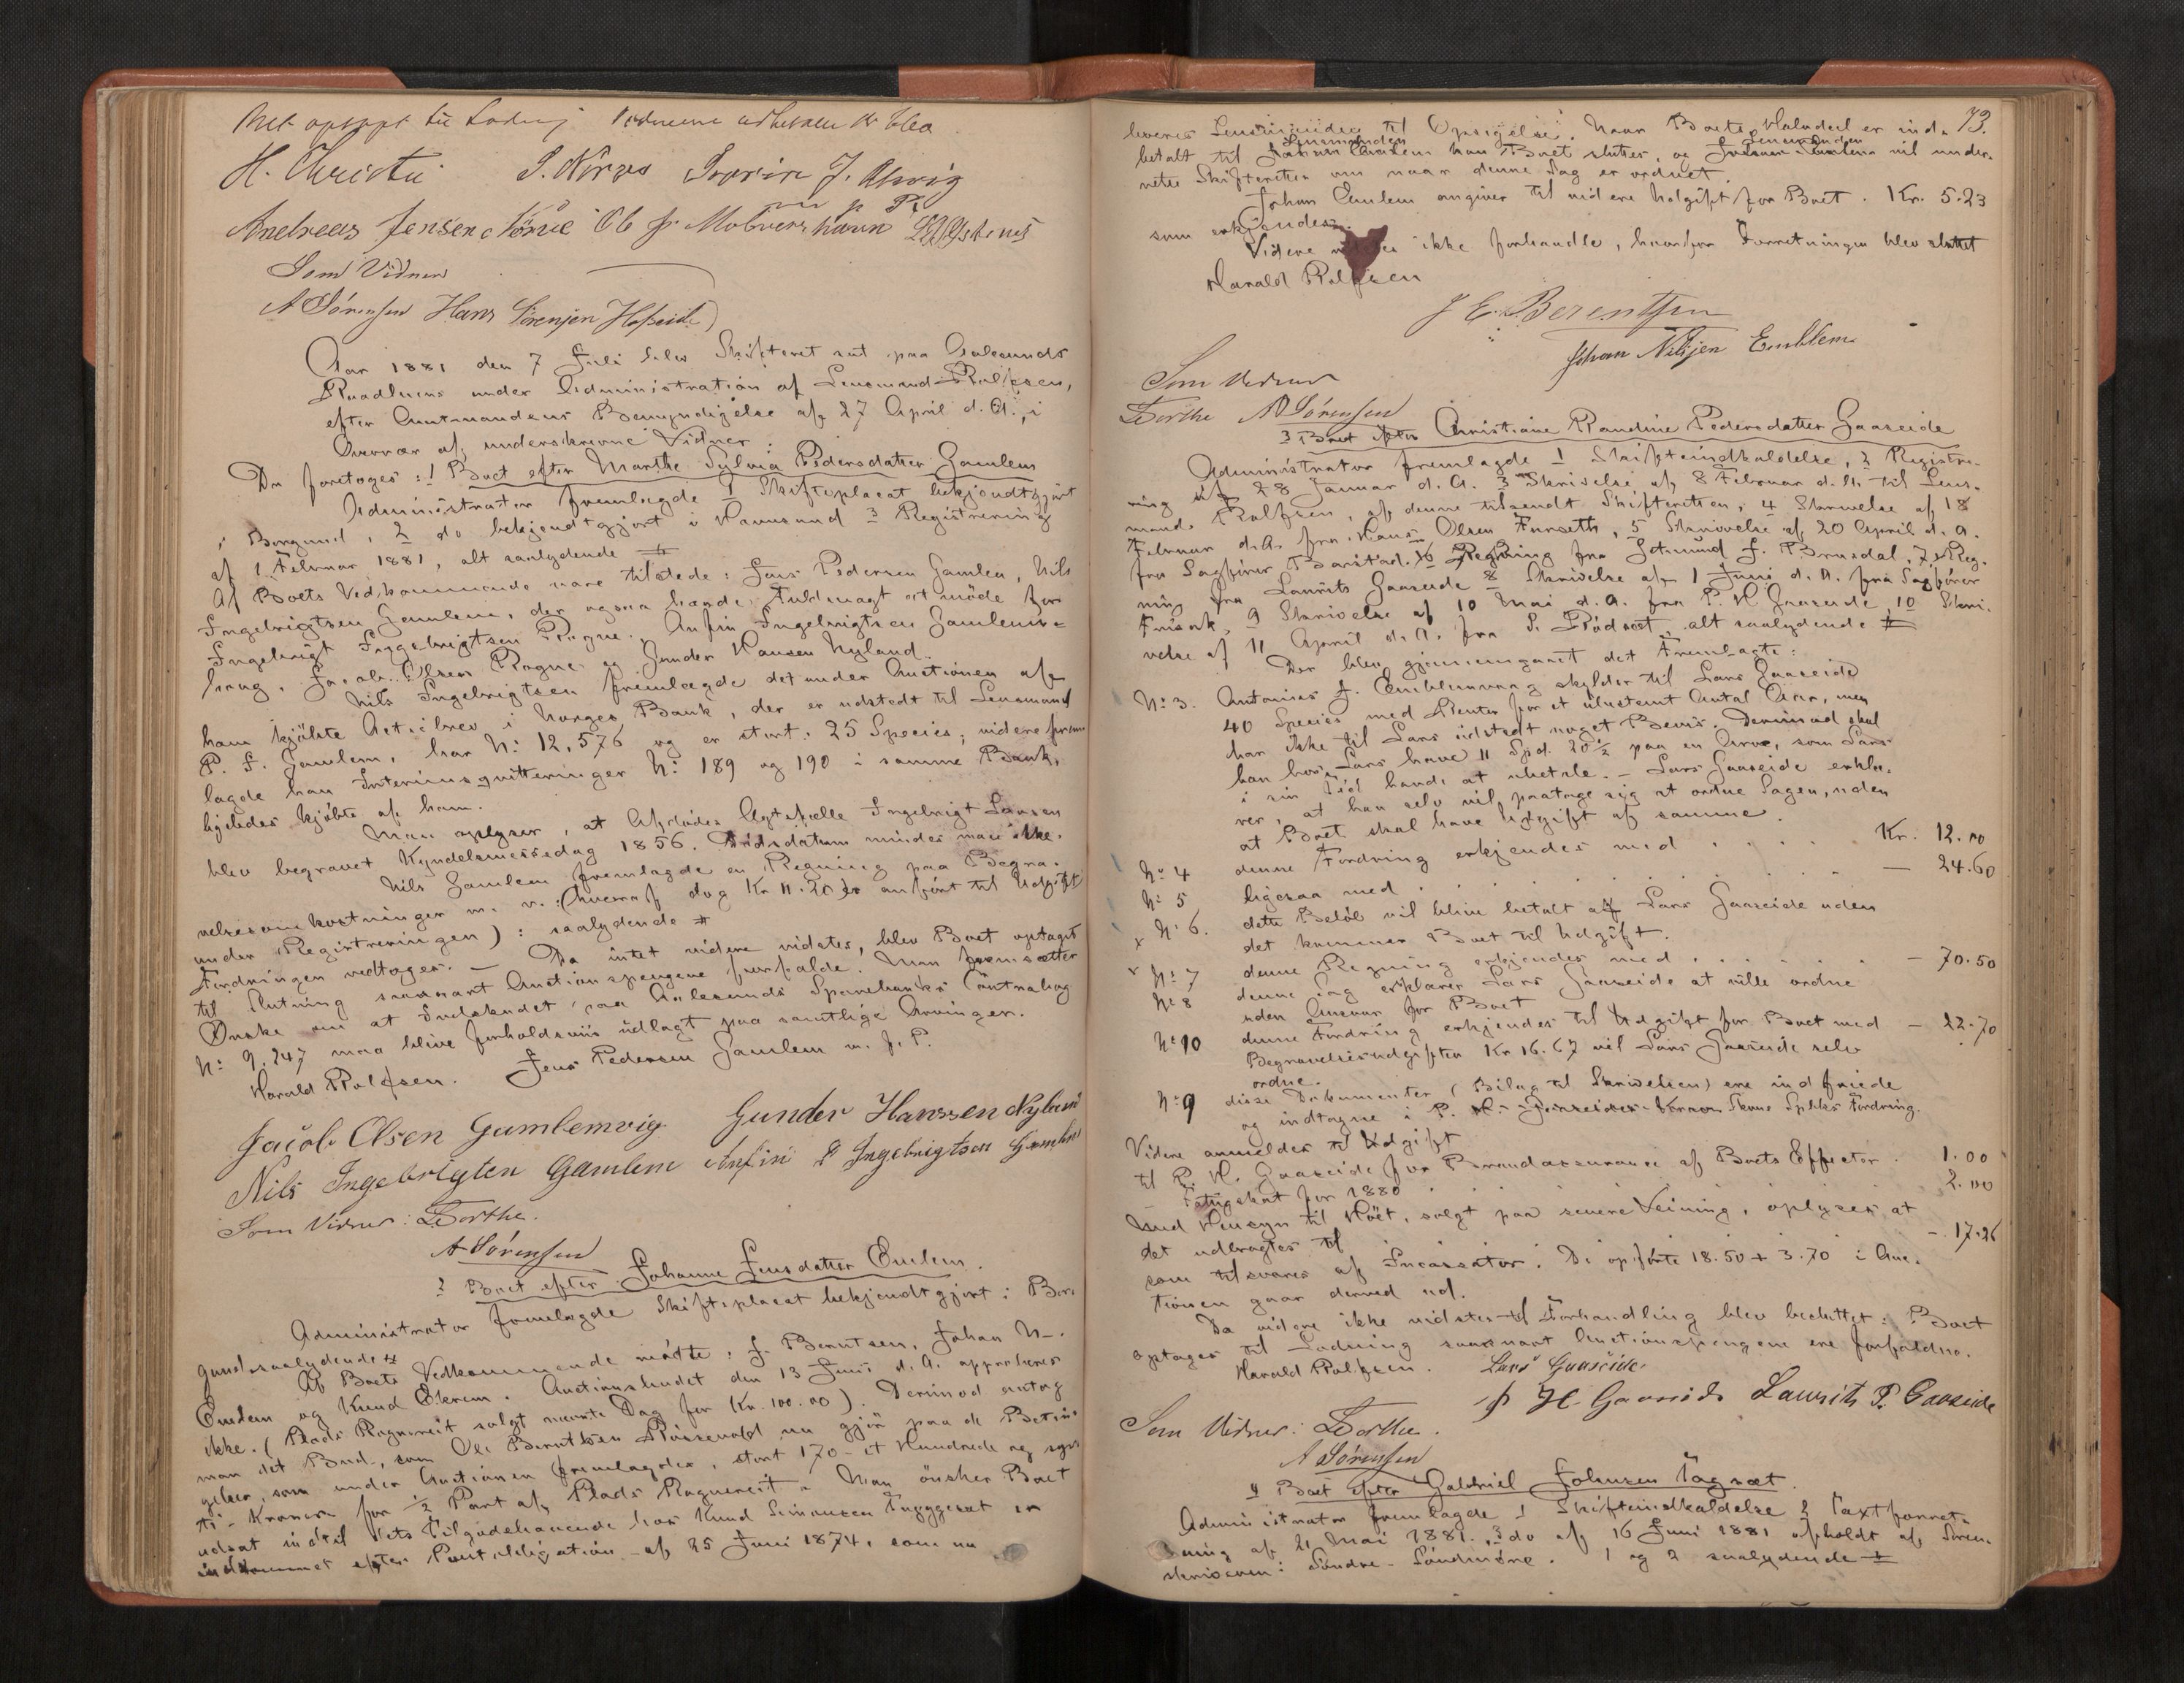 H. Christie S. Nörve J. Alvig
Andreas Jensen Nörve
Som Vidner
A Sörensen Hans Sörensen Hesseid
Aar 1881 den 7 Juli blev Skifteret sat paa Aalesunds
Raadhuus under Administration af Lensmand Rolfsen,
efter Amtmandens Bemyndigelse af 27 April d. A., i
Overvær af underskrevne Vidner:
Da foretoges: 1 Boet efter Marthe Sylvia Pedersdatter Gamlem
Administrator fremlagde 1 Skifteplacat bekjendtgjort
i Borgund, 2 do bekjendtgjort i 3 Registrering
af 1 Februar 1881, alt saalydende
Af Boets Vedkommende vare tilstede: Jens Pedersen Gamlem, Nils
Ingebrigtsen Gamlem, der ogsaa havde Fuldmagt at möde for
Ingebrigt Ingebrigtsen Rogne. Anfin Ingebrigtsen Gamlems-
haug, Jacob Olsen Rogne og Gunder Hansen Nyland.
Nils Ingebrigtsen fremlagde det under Auctionen af
ham kjöbte Actiebrev i Norges Bank, der er udstedt til Lensmand
P. F. Gamlem, har No 12,576 og er stort: 25 Species; videre frem-
lagde han Interimsqvitteringer No 189 og 190 i samme Bank,
ligeledes kjöbte af ham.
Man oplyser, at Afdödes Ægtefælle Ingebrigt Larsen
blev begravet Kyndelsmessedag 1856. Dödsdatum mindes man ikke.
Nils Gamlem fremlagde en Regning paa Begra-
velsesomkostninger m. v. (hvoraf dog Kr 11.20 er anfört til Udgift
under Registreringen): saalydende #
Fordringen vedtages. — Da intet videre vidstes, blev Boet optaget
til Slutning saasnart Auctionspengene forfalde. Man fremsætter
Önske om at Indskudet paa Aalesunds Sparebanks Contrabog
No 9,247 maa blive forholdsviis udlagt paa samtlige Arvinger.
Harald Rolfsen. Jens Pedersen Gamlem m. f. P.
Jacob Olsen Gamlemvig Gunder Hanssen Nyland
Nils Ingebrigten Gamlem Anfin Ingebrigtsen Gamlem
Som Vidner: Dorthe.
A Sörensen
2 Boet efter Johanne Jensdatter Emlem.
Administrator fremlagde Skifteplacat bekjendtgjort i Bor-
gund saalydende
Af Boets Vedkommende mödte: J. Berntsen, Johan N-.
Emlem og Knud Ekrem. Auctionsbudet den 13 Juni d. A. approberes
ikke. (Plads Rognereit solgt nævnte Dag for Kr. 100.00). Derimod antog
man det Bud, som Ole Berntsen nu gjör paa de Betin-
gelser, som under Auctionen fremlagdes, stort 170- et Hundrede og syv-
ti- Kroner for 1/2 Part af Plads Rognereit. Man önsker Boet
udsat indtil dets Tilgodehavende hos Knud Simonsen er
indkommet efter Panteobligation af 25 Juni 1874, som nu
73.
leveres Lensmanden til Opsigelse. Naar Boets Halvdel er ind-
betalt til Lensmanden kan Boet sluttes, og Lensmanden vil under-
rette Skifteretten om naar denne Sag er ordnet.
Johan Emlem angiver til videre Udgift for Boet. Kr. 5.23
som erkjendes.
Videre ikke forhandle, hvorfor Forretningen blev sluttet
Harald Rolfsen
J E Berentsen
Johan Nilsjen Emblem
Som Vidner
Dorthe A Sörensen
3 Boet efter Christiane Randine Pedersdatter Gaaseide
Administrator fremlagde 1 Skifteindkaldelse, 2 Registre-
ring af 28 Januar d. A. 3 Skrivelse af 8 Februar d. A. til Lens-
mand Rolfsen, af denne tilsendt Skifteretten, 4 Skrivelse af 18
Februar d. A. fra Hans Olsen Furseth, 5 Skrivelse af 20 April d. A.
fra Sagförer Barstad. 6 Regning fra Jetmund J. Brusdal, 7 Reg-
ning fra Laurits Gaaseide 8 Skrivelse af 1 Juni d. A. fra Sagförer
Frisak, 9 Skrivelse af 10 Mai d. A. fra P. H. Gaaseide, 10 Skri-
velse af 11 April d. A. fra S. Rödset, alt saalydende #
Der blev gjennemgaaet det Fremlagte:
No 3. Antonius J. Emblemsvaag skylder til Lars Gaaseide
40 Species med Renter for et ubestemt Antal Aar, men
har ikke til Lars udstedt noget Beviis. Derimod skal
han hos Lars have 11 Spd. 20 1/2 paa en Arv, som Lars
i sin Tid havde at ubetale. — Lars Gaaseide erklæ-
rer, at han selv vil paatage sig at ordne Sagen, uden
at Boet skal have Udgift af samme.
No 4 denne Fordring erkjendes med . . . . Kr. 12.00
No 5 ligesaa med . . . . — 24.60
x No 6. dette Belöb vil blive betalt af Lars Gaaseide uden
det kommer Boet til Udgift.
No 7 denne Regning erkjendes med . . . . — 70.50
No 8 denne Sag erklærer Lars Gaaseide at ville ordne
uden Ansvar for Boet
No 10 denne Fordring erkjendes til Udgift for Boet med — 22.70
Begravelsesudgifter Kr 16.67 vil Lars Gaaseide selv
ordne.
No 9 disse Dokumenter (Bilag til Skrivelsen) ere indfriede
og indtagne i P. H. Fordring.
Videre anmeldes til Udgift
til P. H. Gaaseide for Brandassurance af Boets Effecter . 1.00
— Fattigskat for 1880 . . . . 2.00
Med Hensyn til Höet, solgt paa senere Veining, oplyses, at
det udbragtes til . . . . — 17.26
som tilsvares af Incassator. De opförte 18.50 + 3.70 i Auc-
tionen gaar derved ud.
Da videre ikke vidstes til Forhandling blev besluttet: Boet
optages til Lodning saasnart Auctionspengene ere forfaldne.
Harald Rolfsen. Lars Gaaseide
P H. Gaaseide Laurits P. Gaaseide
Som Vidner: Dorthe.
A Sörensen
4 Boet efter Gabriel Johnsen
Administrator fremlagde 1 Skifteindkaldelse 2 Taxtforret-
ning af 21 Mai 1881, 3 do af 16 Juni 1881 afholdt af Soren-
skriveren i Söndre-Söndmöre. 1 og 2 saalydende #